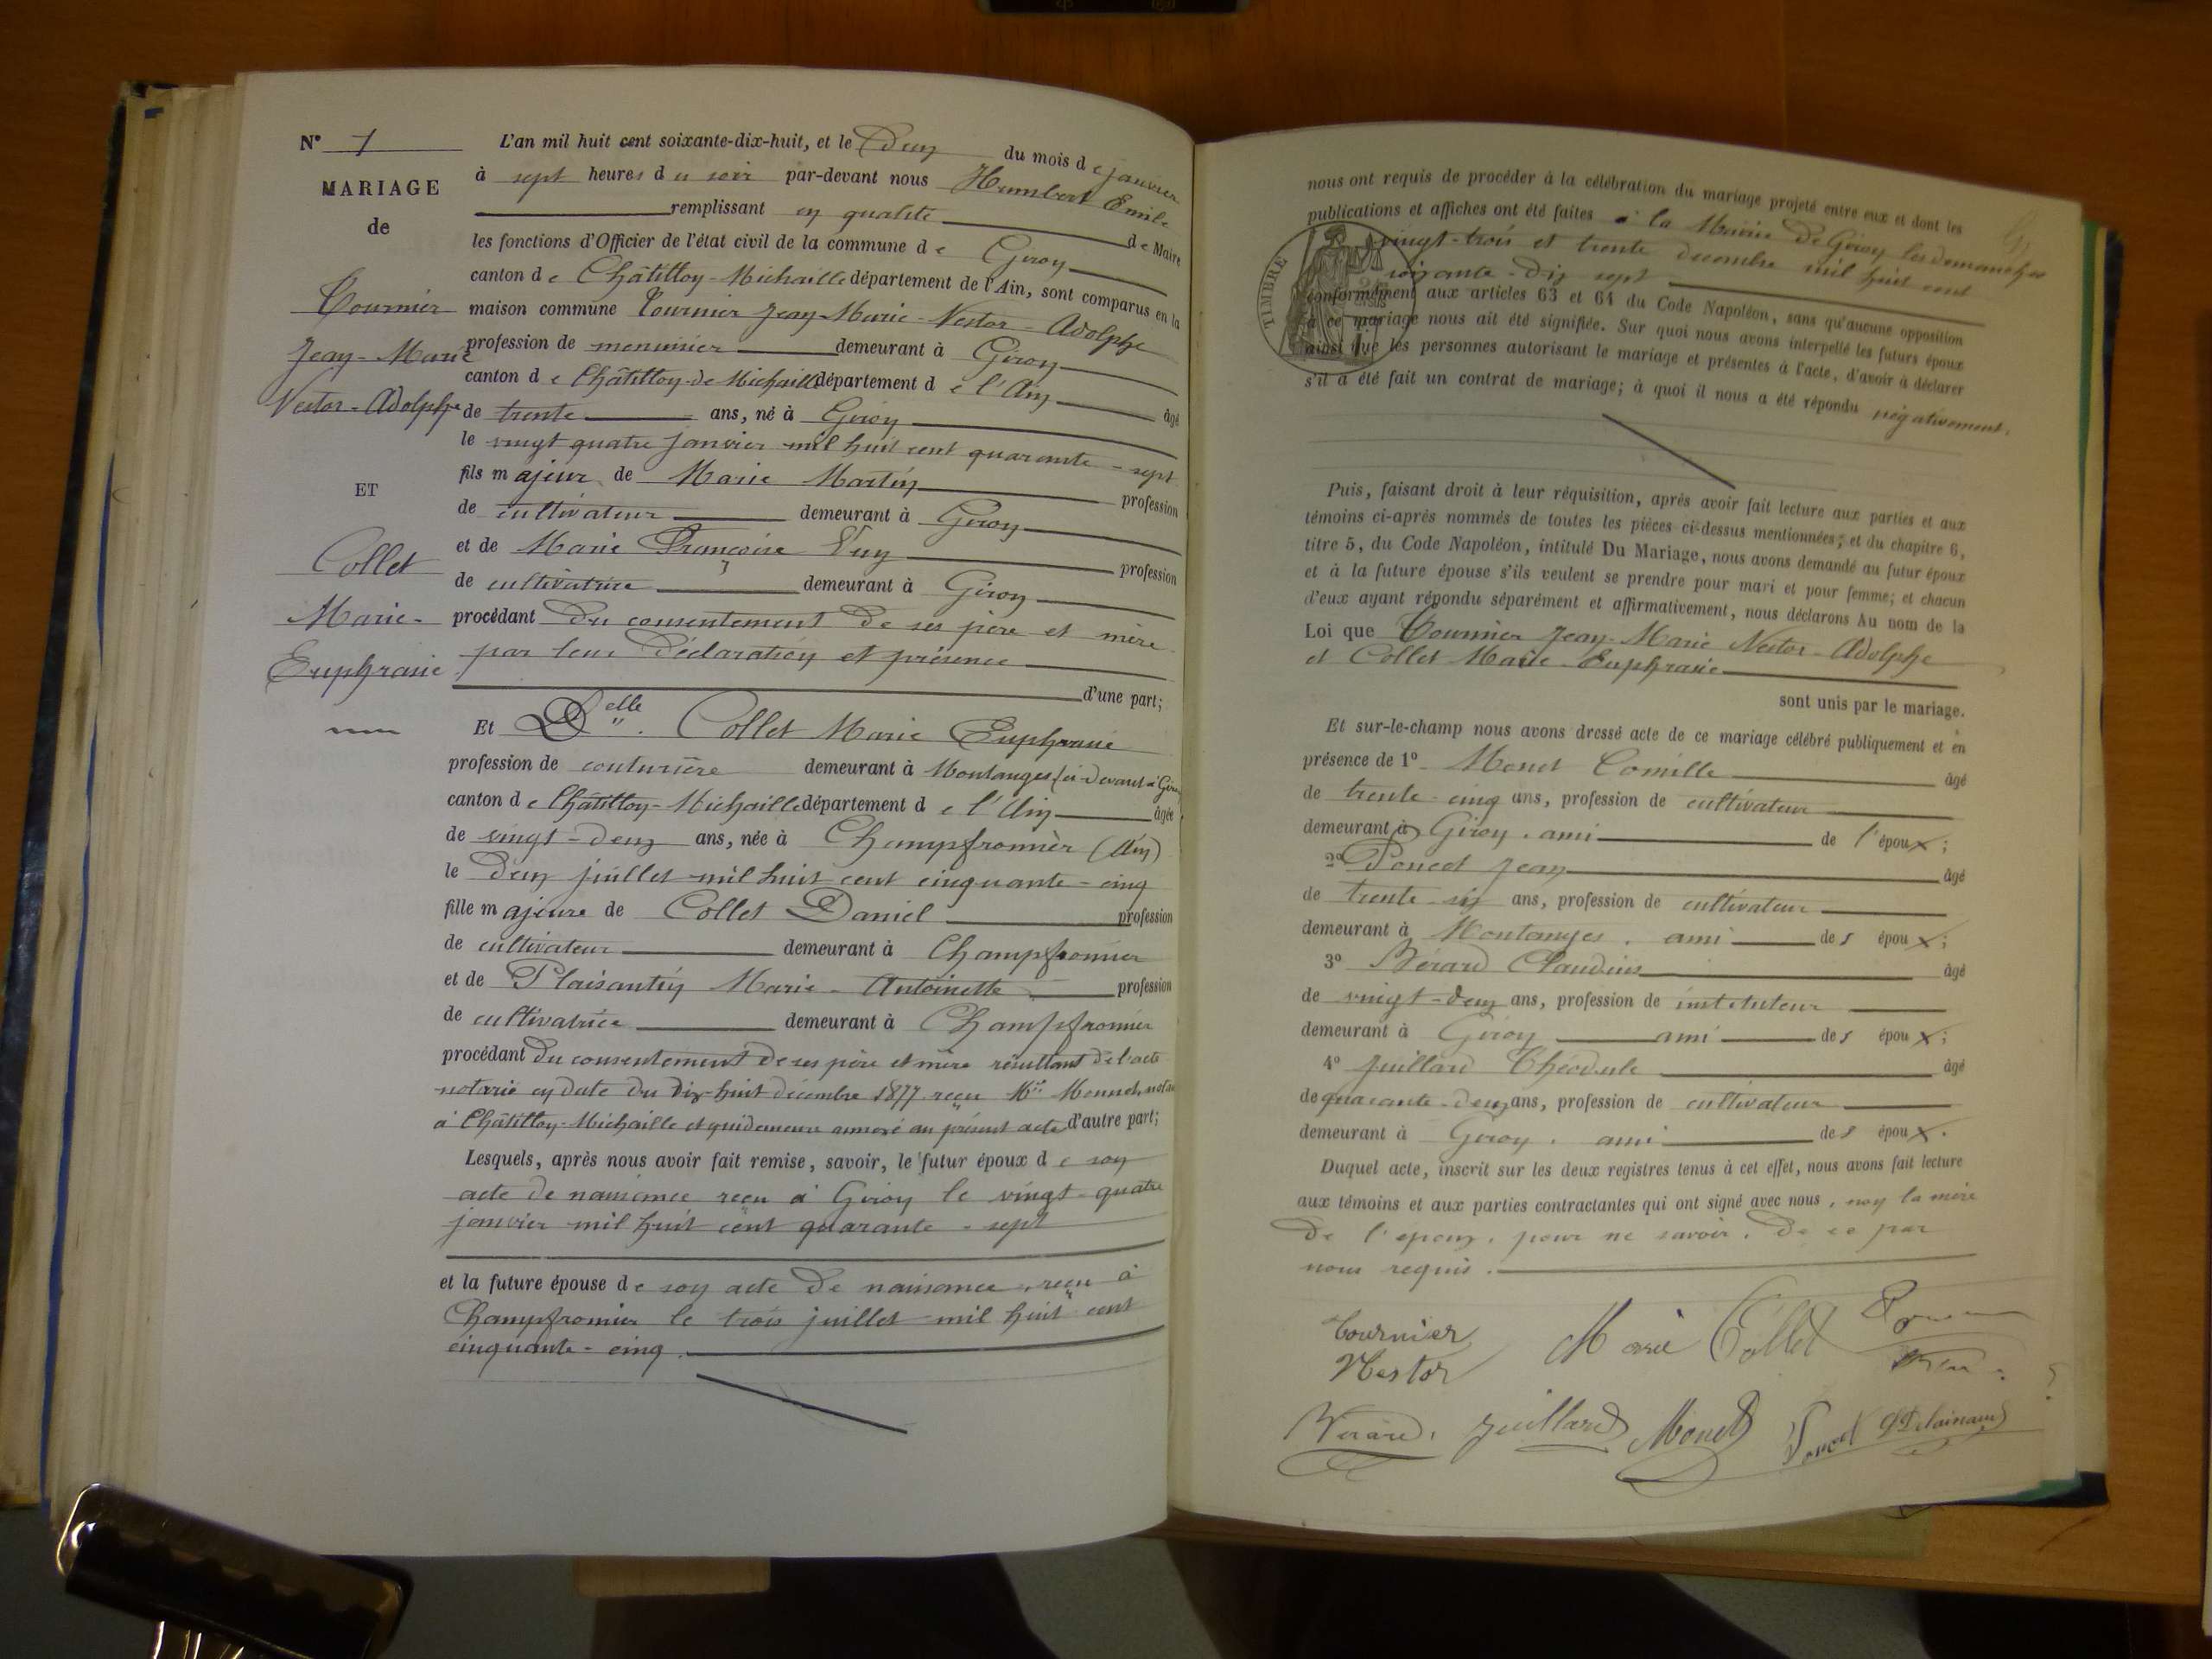 N° 1
MARIAGE
de
Tournier
Jean-Marie
Nestor-Adolphe
ET
Collet
Marie-
Euphrasie
L'an mil huit cent soixante-dix-huit, et le Deux du mois de janvier
à sept heures du soir par-devant nous Humbert Emile
remplissant en qualité de Maire
les fonctions d'Officier de l'état civil de la commune de Giron
canton de Châtillon-Michaille département de l'Ain, sont comparus en la
maison commune Tournier Jean-Marie-Nestor-Adolphe
profession de menuisier demeurant à Giron
canton de Châtillon-de-Michaille département de l'Ain âgé
de trente ans, né à Giron
le vingt quatre janvier mil huit cent quarante-sept
fils majeur de Marie Martin profession
de cultivateur demeurant à Giron
et de Marie Françoise profession
de cultivatrice demeurant à Giron
procédant Du consentement De ses père et mère
par leur Déclaration et présence
d'une part;
Et Delle Collet Marie Euphrasie
profession de couturière demeurant à Montanges (ci-devant à Giron
canton de Châtillon-Michaille département de l'Ain âgée
de vingt-deux ans, née à Champfromier (Ain)
le Deux juillet mil huit cent cinquante-cinq
fille majeure de Collet Daniel profession
de cultivateur demeurant à Champfromier
et de Plaisantin Marie-Antoinette profession
de cultivatrice demeurant à Champfromier
procédant Du consentement De ses père et mère résultant De l'acte
notarié en Date Du Dix-huit décembre 1877 reçu Me Monnet, notaire
à Châtillon-Michaille et qui demeure annexé au présent acte d'autre part;
Lesquels, après nous avoir fait remise, savoir, le futur époux de son
acte de naissance reçu à Giron le vingt-quatre
janvier mil huit cent quarante-sept
et la future épouse de son acte De naissance, reçu à
Champfromier le trois juillet mil huit cent
cinquante-cinq.
nous ont requis de procéder à la célébration du mariage projeté entre eux et dont les
publications et affiches ont été faites à la Mairie De Giron les dimanches
vingt-trois et trente décembre mil huit cent
soixante-dix sept
TIMBRE
conformément aux articles 63 et 64 du Code Napoléon, sans qu'aucune opposition
à ce mariage nous ait été signifiée. Sur quoi nous avons interpellé les futurs époux
ainsi que les personnes autorisant le mariage et présentes à l'acte, d'avoir à déclarer
s'il a été fait un contrat de mariage; à quoi il nous a été répondu négativement.
Puis, faisant droit à leur réquisition, après avoir fait lecture aux parties et aux
témoins ci-après nommés de toutes les pièces ci-dessus mentionnées; et du chapitre 6,
titre 5, du Code Napoléon, intitulé Du Mariage, nous avons demandé au futur époux
et à la future épouse s'ils veulent se prendre pour mari et pour femme; et chacun
d'eux ayant répondu séparément et affirmativement, nous déclarons Au nom de la
Loi que Tournier Jean-Marie Nestor-Adolphe
et Collet Marie-Euphrasie
sont unis par le mariage.
Et sur-le-champ nous avons dressé acte de ce mariage célébré publiquement et en
présence de 1° Monet Camille âgé
de trente-cinq ans, profession de cultivateur
demeurant à Giron. ami de l'époux;
2° Poncet Jean âgé
de trente-six ans, profession de cultivateur
demeurant à Montanges. ami des époux;
3° Bérard Claudius âgé
de vingt-deux ans, profession de instituteur
demeurant à Giron ami des époux;
4° Juillard Théodule âgé
de quarante-deux ans, profession de cultivateur
demeurant à Giron. ami des époux.
Duquel acte, inscrit sur les deux registres tenus à cet effet, nous avons fait lecture
aux témoins et aux parties contractantes qui ont signé avec nous, non la mère
De l'époux, pour ne savoir, De ce par
nous requis.
Tournier
Nestor
Marie Collet
Bérard. Juillard Monet Poncet